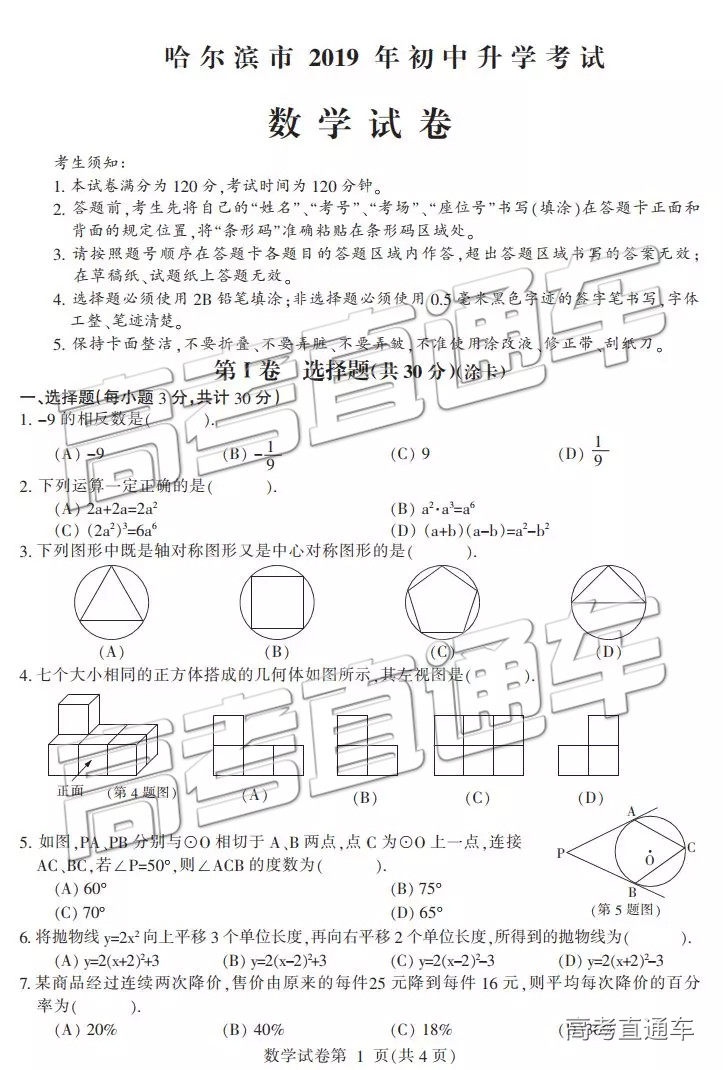 哈尔滨市 2019 年初中升学考试
数学试卷
考生须知:
1. 本试卷满分为 120 分,考试时间为 120 分钟。
2. 答题前,考生先将自己的“姓名”、“考号”、“考场”、“座位号”书写(填涂)在答题卡正面和
背面的规定位置,将“条形码”准确粘贴在条形码区域处。
3. 请按照题号顺序在答题卡各题目的答题区域内作答,超出答题区域书写的答案无效;
在草稿纸、试题纸上答题无效。
4. 选择题必须使用 2B 铅笔填涂;非选择题必须使用 0.5 毫米黑色字迹的签字笔书写,字体
工整、笔迹清楚。
5. 保持卡面整洁,不要折叠、不要弄脏、不要弄皱,不准使用涂改液、修正带、刮纸刀。
第Ⅰ卷 选择题(共 30 分)(涂卡)
一、选择题(每小题 3 分,共计 30 分)
1. -9 的相反数是( ).
(A) -9 (B) -1/9 (C) 9 (D) 1/9
2. 下列运算一定正确的是( ).
(A) 2a+2a=2a² (B) a²·a³=a⁶
(C) (2a²)³=6a⁶ (D) (a+b)(a-b)=a²-b²
3. 下列图形中既是轴对称图形又是中心对称图形的是( ).
(A) (B) (C) (D)
4. 七个大小相同的正方体搭成的几何体如图所示,其左视图是( ).
正面 (第 4 题图) (A) (B) (C) (D)
5. 如图,PA、PB 分别与⊙O 相切于 A、B 两点,点 C 为⊙O 上一点,连接
AC、BC,若∠P=50°,则∠ACB 的度数为( ).
(A) 60° (B) 75°
(C) 70° (D) 65°
A
P
O
C
B
(第 5 题图)
6. 将抛物线 y=2x² 向上平移 3 个单位长度,再向右平移 2 个单位长度,所得到的抛物线为( ).
(A) y=2(x+2)²+3 (B) y=2(x-2)²+3 (C) y=2(x-2)²-3 (D) y=2(x+2)²-3
7. 某商品经过连续两次降价,售价由原来的每件25 元降到每件 16 元,则平均每次降价的百分
率为( ).
(A) 20% (B) 40% (C) 18% (D) 36%
数学试卷第 1 页(共 4 页)
高考直通车
高考直通车
高考直通车